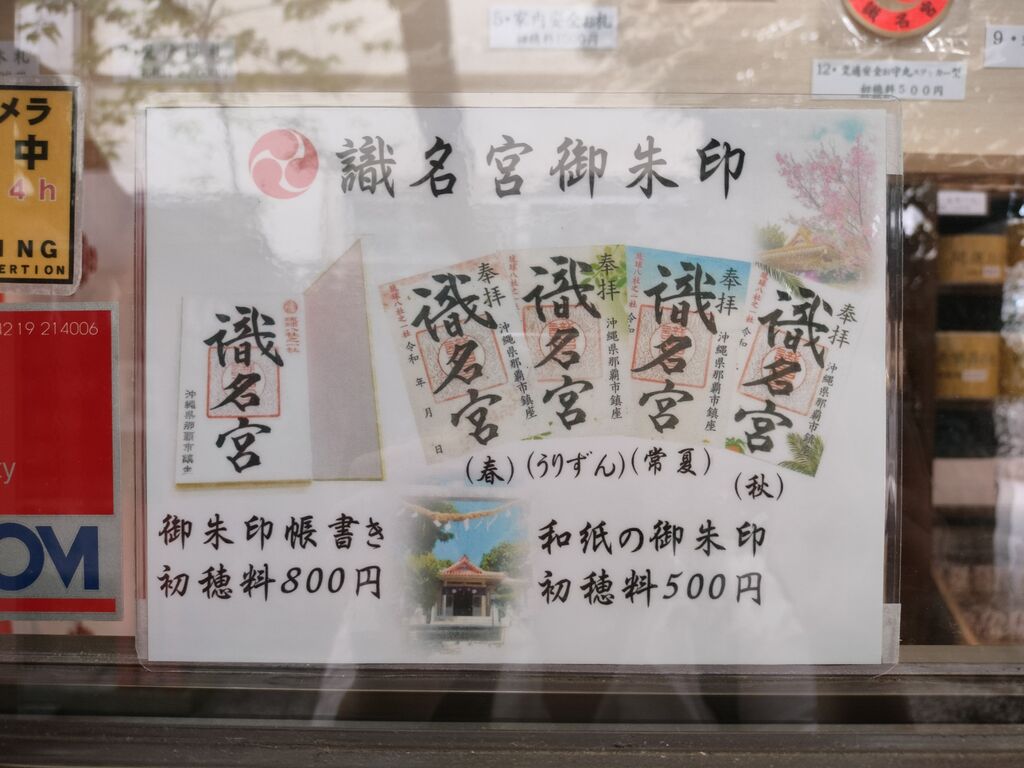 5・家内安全お札
初穂料1000円
識名宮
12・交通安全お守丸ステッカー型
初穂料500円
9・
木札
メラ
中
4h
ING
ERTION
4219 214006
ty
OM
識名宮御朱印
識名宮
沖縄県那覇市鎮座
奉拝
琉球八社之一社
識名宮
沖縄県那覇市鎮座
令和 年 月 日
奉拝
琉球八社之一社
識名宮
沖縄県那覇市鎮座
令和
奉拝
琉球八社之一社
識名宮
沖縄県那覇市鎮座
令和
奉拝
琉球八社之一社
識名宮
沖縄県那覇市鎮座
令和
(春)
(うりずん)
(常夏)
(秋)
御朱印帳書き
初穂料800円
和紙の御朱印
初穂料500円